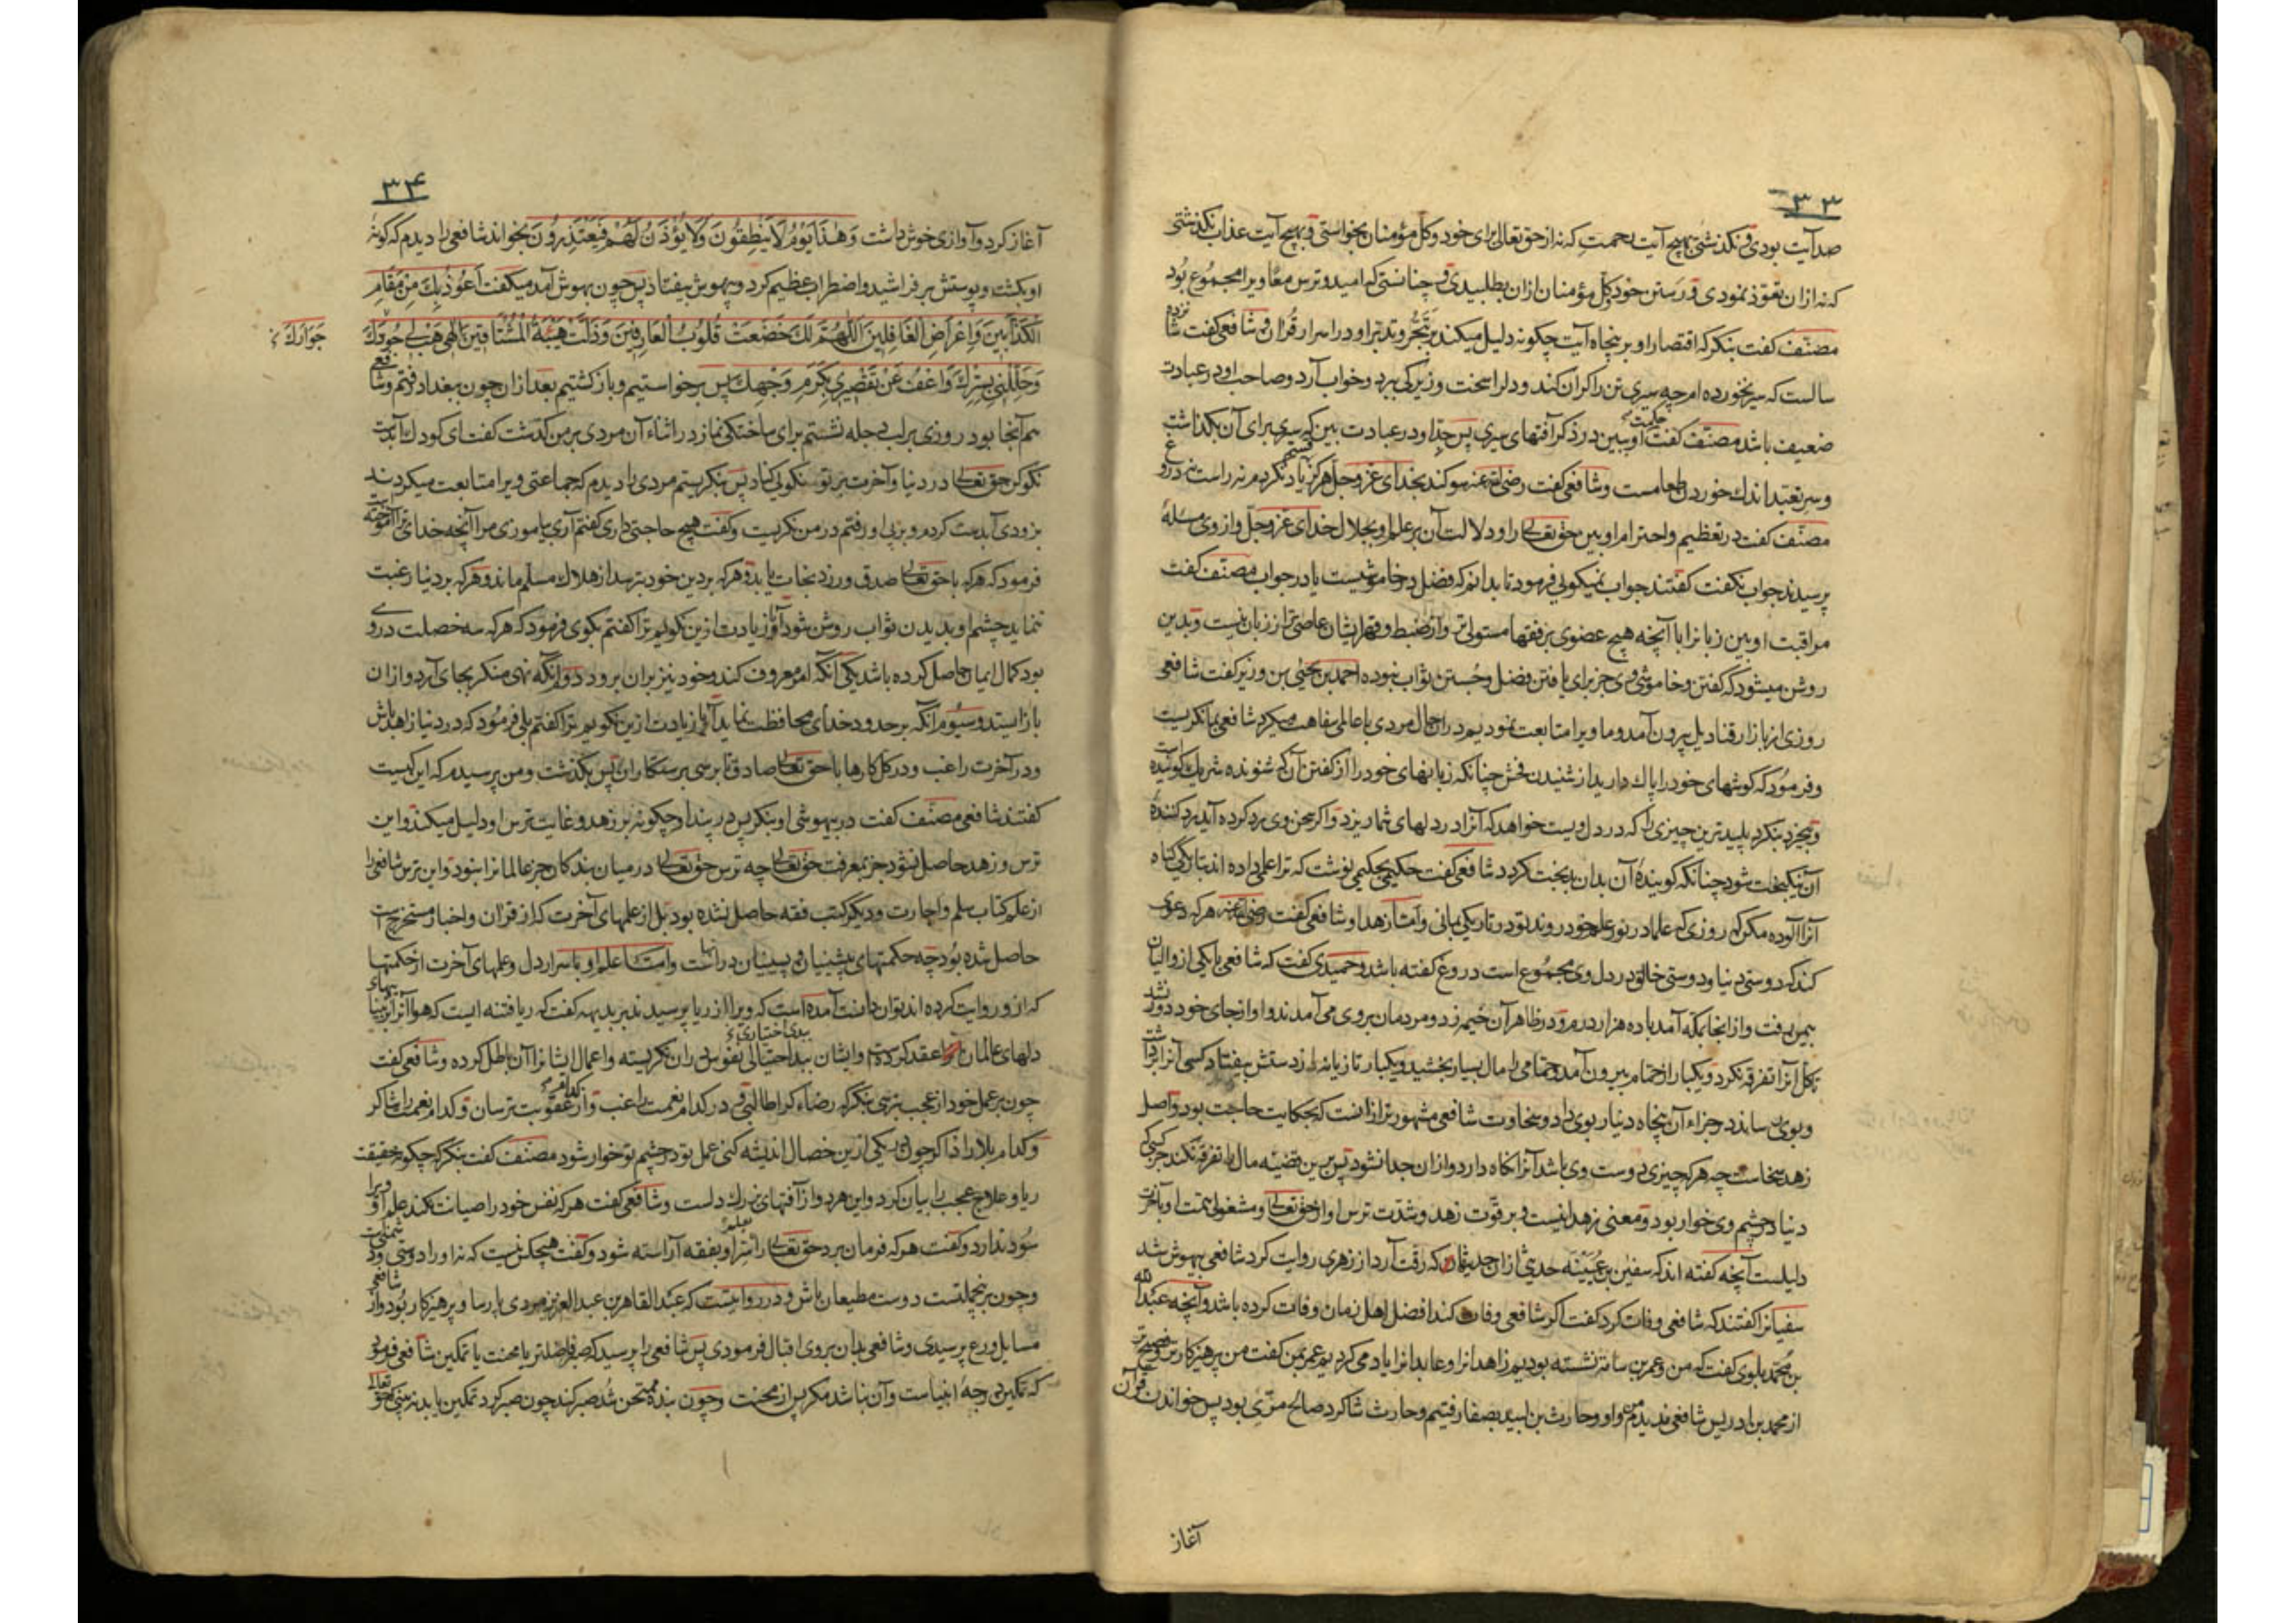 ۳۳
صد آیت بودی و نگذشتی بهیچ آیت رحمت که نه از حق تعالی برای خود و کل مؤمنان بخواستی و بهیچ آیت عذاب نگذشتی
که نه ازان تعوّذ نمودی و رستن خود و کل مؤمنان ازان بطلبیدی و چنانستی که امید و ترس معًا ویرا مجموع بود
مصنّف کفت بنکر که اقتصار او بر پنجاه آیت چکونه دلیل میکند بر تبحّر و تدبّر او در اسرار قُران و شافعی کفت شانزده
سالست که سیر نخورده ام چه سیری تن را کران کند و دلرا سخت و زیرکی ببرد و خواب آرد و صاحب او در عبادت
ضعیف باشد مصنّف کفت حکمت او ببین در ذکر آفتهای سیری پس جدّ او در عبادت بین که سیری برای آن بکذاشت
و سر تعبّد اندك خوردن طعامست و شافعی کفت رضی الله عنه سوکند بخدای عزّ و جلّ هرکز یاد نکردم نه راست نه دروغ
مصنّف کفت در تعظیم و احترام او ببین حق تعالی را و دلالت آن بر علم او بجلال خدای عزّ و جلّ و از وی مسئلهٔ
پرسیدند جواب نکفت کفتند جواب نمیکویی فرمود تا بدانم که فضل در خاموشیست یا در جواب مصنّف کفت
مراقبت او بین زبانرا با آنچه هیچ عضوی بر فقها مستولی تر و از ضبط و قهر ایشان عاصی تر از زبان نیست و بدین
روشن میشود که کفتن و خاموشی وی جز برای یافتن فضل و جُستن ثواب نبوده احمد بن یحیی بن وزیر کفت شافعی
روزی از بازار قنادیل بیرون آمد و ما ویرا متابعت نمودیم دران حال مردی با عالمی سفاهت میکرد شافعی بما نکریست
و فرمُود که کوشهای خود را پاك دارید از شنیدن فحش چنانکه زبانهای خود را از کفتن آن که شنونده شریك کوینده است
و بیخرد بنکرد پلیدترین چیزی را که در دل ویست خواهد که آنرا در دلهای شما ریزد و اکر سخن وی رد کرده آید رد کنندهٔ
آن نیکبخت شود چنانکه کویندهٔ آن بدان بدبخت کردد شافعی کفت حکیمی بحکیمی نوشت که ترا علمی داده اند بتاریکی کناه
آنرا آلوده مکن که روزی که علما در نور علم خود روند تو در تاریکی بمانی و امّا زهد او شافعی کفت رضی الله عنه هرکه دعوی
کند که دوستی دنیا و دوستی خالق در دل وی مجموع است دروغ کفته باشد و حمیدی کفت که شافعی با یکی از والیان
بیمن برفت و از انجا بمکه آمد با ده هزار درم و در ظاهر آن خیمه زد و مردمان بروی می آمدند و او از جای خود دور نشد
تا کل آنرا تفرقه نکرد و یکبار از حمّام بیرون آمد و حمّامی را مال بسیار بخشید و یکبار تازیانه از دستش بیفتاد کسی آنرا برداشت
و بوی رسانید در جزاء آن پنجاه دینار بوی داد و سخاوت شافعی مشهورتر ازانست که بحکایت حاجت بود و اصل
زهد سخاست چه هرکه چیزی دوست وی باشد آنرا نکاه دارد و ازان جدا نشود پس برین قضیّه مال را تفرقه نکند جز کسی که
دنیا در چشم وی خوار بود و معنی زهد اینست و بر قوّت زهد و شدّت ترس او از حق تعالی و مشغولی همّت او بآخرت
دلیلست آنچه کفته اند که سفین بن عُیَیْنه حدیثی از ان حدیثها که رقّت آرد از زهری روایت کرد شافعی بیهوش شد
سفیانرا کفتند که شافعی وفات کرد کفت اکر شافعی وفات کند افضل اهل زمان وفات کرده باشد و آنچه عبد الله
بن مُحمّد بلوی کفت که من و عمر بن نباته نشسته بودیم زاهدانرا و عابدانرا یاد می کردیم عمر بمن کفت من پرهیزکارتر و فصیح تر
از محمد بن ادریس شافعی ندیدم من و او و حارث بن لبید بصفا رفتیم و حارث شاکرد صالح مرّی بود پس خواندن قرآن
آغاز
۳۴
آغاز کرد و آوازی خوش داشت وَهٰذَا یَوْمُ لَا یَنْطِقُونَ وَلَا یُؤْذَنُ لَهُمْ فَیَعْتَذِرُونَ بخواند شافعی را دیدم که کونهٔ
او بکشت و پوستش بر فراشید و اضطراب عظیم کرد و بیهوش بیفتاد پس چون بهوش آمد میکفت اَعُوذُ بِكَ مِنْ مَقَامِ
الْکَذَّابِینَ وَاِعْرَاضِ الْغَافِلِینَ اَللّٰهُمَّ لَكَ خَضَعَتْ قُلُوبُ الْعَارِفِینَ وَذَلَّتْ هَیْبَةُ الْمُشْتَاقِینَ اِلٰهِی هَبْ لِی جُودَكَ
جَوَارَكَ
وَجَلِّلْنِی بِسِتْرِكَ وَاعْفُ عَنْ تَقْصِیرِی بِکَرَمِ وَجْهِكَ پس برخواستیم و بازکشتیم بعد ازان چون ببغداد رفتم و شافعی
هم آنجا بود روزی بر لب دجله نشستم برای ساختکی نماز در اثناء آن مردی بر من کذشت کفت ای کودك آبدست
نکو کن حق تعالی در دنیا و آخرت بر تو نیکویی کناد پس بنکریستم مردی را دیدم که جماعتی ویرا متابعت میکردند
بزودی آبدست کردم و بر پی او رفتم در من نکریست و کفت هیچ حاجتی داری کفتم آری بیاموزی مرا آنچه خدای ترا آموخته است
فرمود که هرکه با حق تعالی صدق ورزد نجات یابد و هرکه بر دین خود بترسد از هلاك مسلّم ماند و هرکه بر دنیا رغبت
ننماید چشم او بدیدن ثواب روشن شود آیا زیادت ازین نکویم ترا کفتم بکوی فرمود که هرکه سه خصلت در وی
بود کمال ایمان حاصل کرده باشد یکی آنکه امر معروف کند و خود نیز بران برود دوم آنکه نهی منکر بجای آرد و ازان
باز ایستد و سیوم آنکه بر حدود خدای محافظت نماید آیا زیادت ازین نکویم ترا کفتم بلی فرمُود که در دنیا زاهد باش
و در آخرت راغب و در کل کارها با حق تعالی صادق تا برسی برستکاران پس بکذشت و من پرسیدم که این کیست
کفتند شافعی مصنّف کفت در بیهوشی او بنکر پس در پند او چکونه بر زهد و غایت ترس او دلیل میکند و این
ترس و زهد حاصل نشود جز بمعرفت حق تعالی چه ترس حق تعالی در میان بندکان جز عالمانرا نبود و این ترس شافعی را
از علم کتاب سلم و اجارت و دیکر کتب فقه حاصل نشده بود بل از علمهای آخرت که از قران و اخبار مستخرج است
حاصل شده بُود چه حکمتهای پیشینیان و پسینیان در انهاست و امّا علم او باسرار دل و علمهای آخرت از حکمتها
که ازو روایت کرده اند توان دانست آمده است که ویرا از ریا پرسیدند بر بدیهه کفت که ریا فتنه ایست که هوا آنرا بر بینائیهای
دلهای عالمان عقد کردست و ایشان ببد اختیاری نفوس دران نکریسته و اعمال ایشانرا آن باطل کرده و شافعی کفت
چون بر عمل خود از عجب بترسی بنکر که رضاء کرا طالبی و در کدام نعمت راغب و از کدام عقوبت ترسان و کدام نعمت را شاکر
و کدام بلا را ذاکر چون در یکی ازین خصال اندیشه کنی عمل تو در چشم تو خوار شود مصنّف کفت بنکر که چکونه حقیقت
ریا و علاج عجب را بیان کرد و این هر دو از آفتهای بزرك دلست و شافعی کفت هرکه نفس خود را صیانت نکند علم او ویرا
سُود ندارد و کفت هرکه فرمان برد حق تعالی را بعلم سرّ او بفقه آراسته شود و کفت هیچکس نیست که نه او را دوستی و دشمنیست
و چون برینجملتست دوست مطیعان باش و در روایتست که عبد القاهر بن عبد العزیز مردی پارسا و پرهیزکار بُود و از شافعی
مسایل ورع پرسیدی و شافعی بدان بروی اقبال فرمودی پس شافعی را پرسید که صبر فاضلتر یا محنت یا تمکین شافعی فرمود
که تمکین درجهٔ انبیاست و آن نباشد مکر پس از محنت و چون بنده ممتحن شُد صبر کند چون صبر کرد تمکین یابد نه بینی که حق تعالی